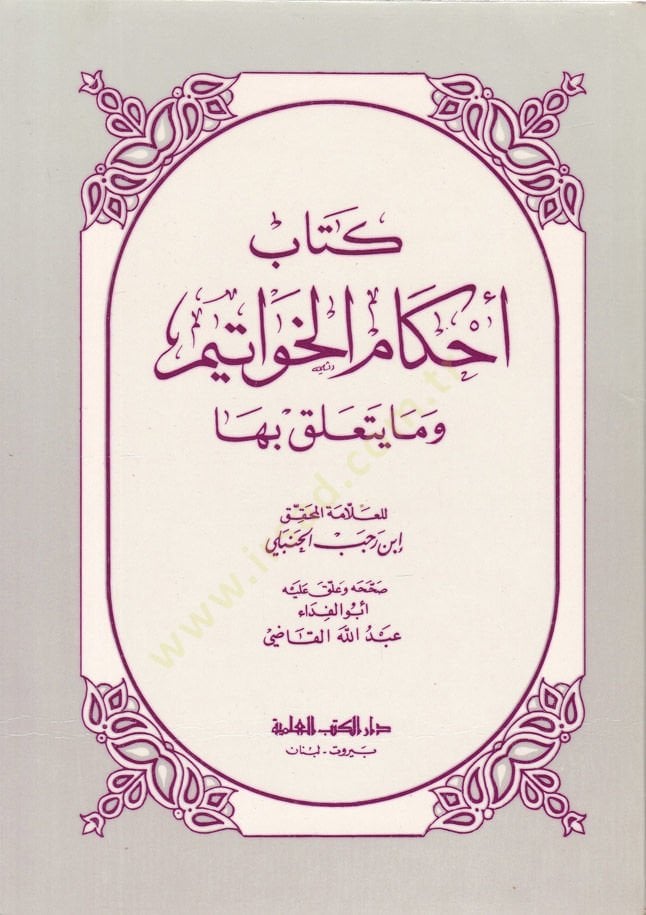 كتاب
أحكام الخواتيم
وما يتعلق بها
للعلّامة المحقّق
إبن رجب الحنبلي
صححه وعلّق عليه
أبو الفداء
عبد الله القاضي
دار الكتب العلمية
بيروت - لبنان